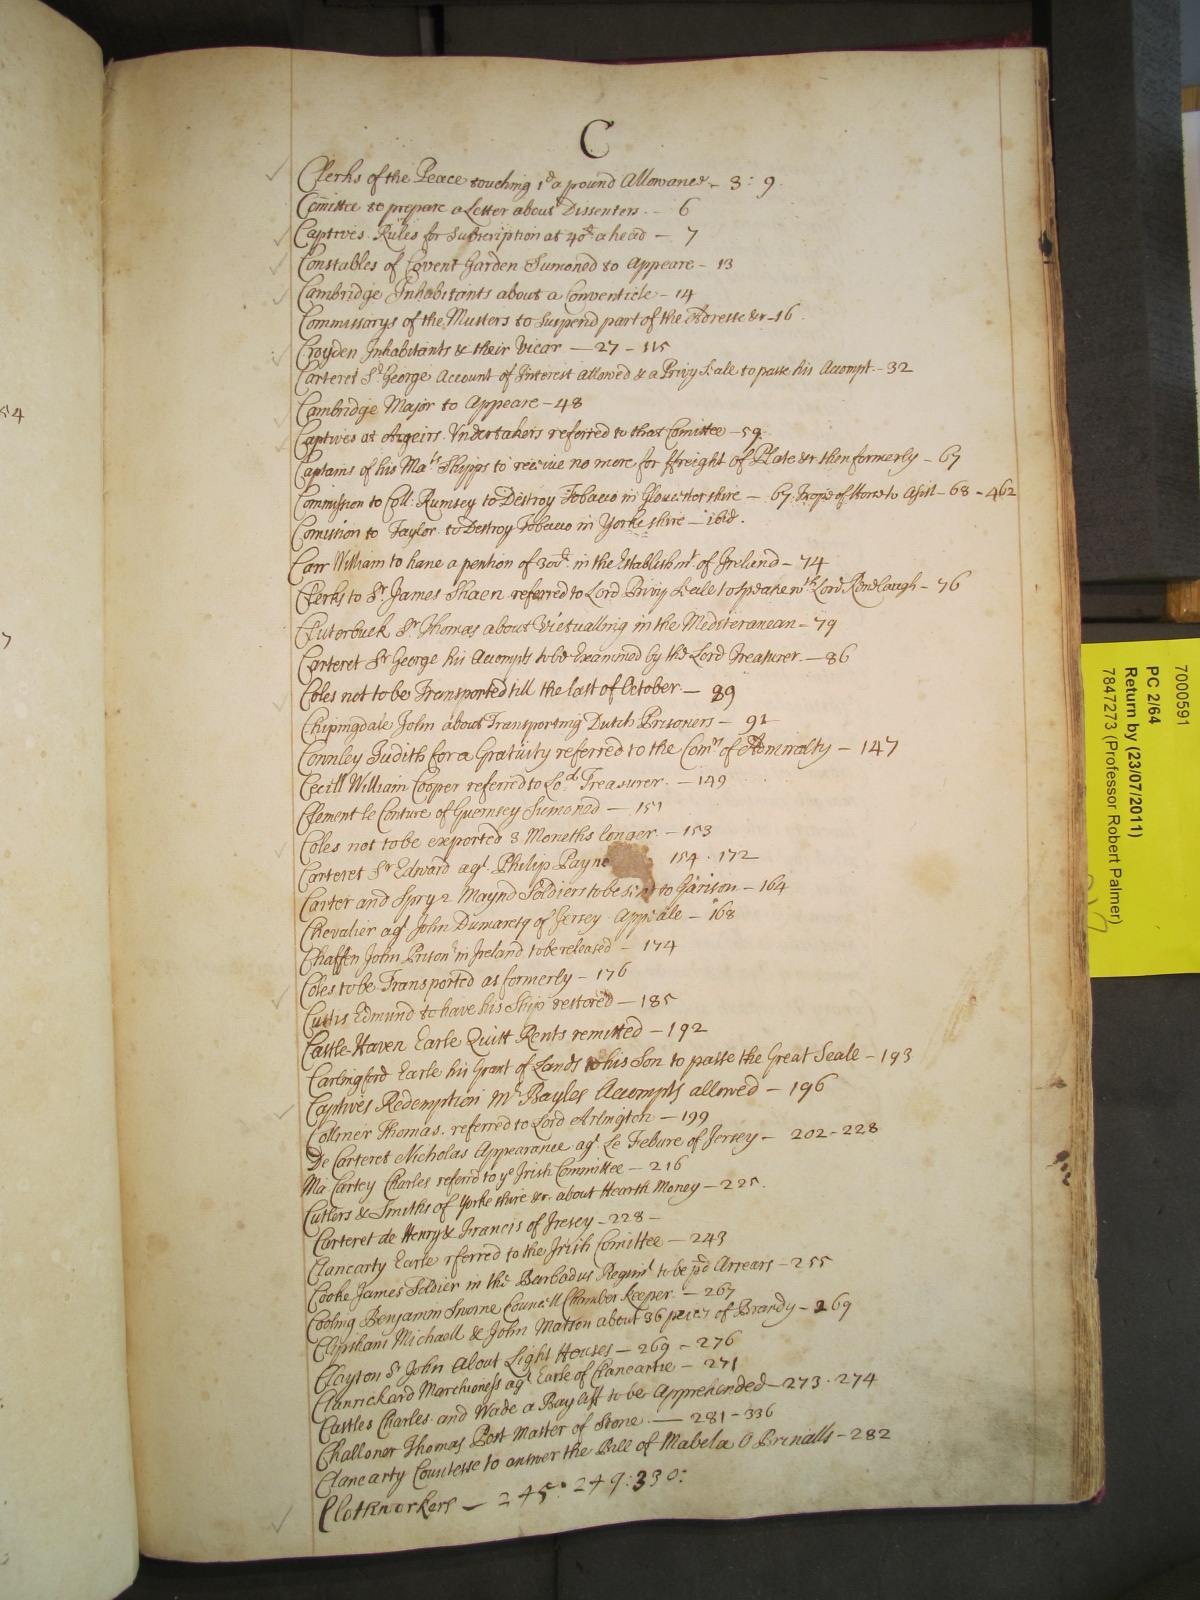 54
7
C
Clerks of the Peace touching 1d a pound Allowance - 3 : 9
Comittee to prepare a Letter about Dissenters - 6
Captives Rules for Subscription at 40s a head - 7
Constables of Covent Garden Sumoned to Appeare - 13
Cambridge Inhabitants about a Conventicle - 14
Commissarys of the Musters to Suspend part of the &c - 16
Croyden Inhabitants & their Vicar - 27 - 115
Carteret Sr George Account of Interest allowed & a Privy Seale to passe his Accompt - 32
Cambridge Major to Appeare - 48
Captives at Argeirs Undertakers referred to that Comittee - 59
Captains of his Mats Shipps to receive no more for ffreight of Plate &c then formerly - 67
Commission to Coll: Rumsey to Destroy Tobacco in Gloucestershire - 67 Troope of Horse to Assist - 68 - 462
Comission to Taylor to Destroy Tobacco in Yorkeshire - ibid.
Carr William to have a pention of 300l in the Establishmt of Ireland - 74
Clerks to Sr James Shaen referred to Lord Privy Seale to speake wth Lord Ranelaugh - 76
Cluterbuck Sr Thomas about Victualling in the Mediteranean - 79
Carteret Sr George his Accompts to be Examined by the Lord Treasurer - 86
Coles not to be Transported till the last of October - 89
Chipingdale John about Transporting Dutch Prisoners - 91
Connley Judith for a Gratuity referred to the Comrs of Admiralty - 147
Cecill William Cooper referred to Lod Treasurer - 149
Clement le Couture of Guernsey Sumoned - 151
Coles not to be exported 8 Moneths longer - 153
Carteret Sr Edward agt Philip Payne 154 . 172
Carter and Spry 2 Maynd Soldiers to be sent to Garison - 164
Chevalier agt John Dumaresq of Jersey Appeale - 168
Chaffen John Prisonr in Ireland to be released - 174
Coles to be Transported as formerly - 176
Curtis Edmund to have his Ship restored - 185
Castle-Haven Earle Quitt Rents remitted - 192
Carlingford Earle his Grant of Lands to his Son to passe the Great Seale - 193
Captives Redemption Mr Bayles Accompts allowed - 196
Collmer Thomas referred to Lord Arlington - 199
De Carteret Nicholas Appearance agt Le Febure of Jersey - 202 - 228
Ma Cartey Charles referrd to ye Irish Committee - 216
Cutlers & Smiths of Yorkeshire &c about Hearth Money - 225.
Carteret de Henry & Francis of Jresey - 228 -
Clancarty Earle rferred to the Irish Comittee - 243
Cooke James Soldier in the Barbadus Regimt to be pd Arrears - 255
Cooling Benjamin Sworne Councill Chamber Keeper - 267
Clipsham Michaell & John Matson about 36 peices of Brandy - 269
Clayton Sr John About Light Houses - 269 - 276
Clanrickard Marchioness agt Earle of Clancartie - 271
Castles Charles and Wade a Bayliff to be Apprehended - 273 . 274
Challoner Thomas Post Master of Stone - 281 - 336
Clancarty Countesse to answer the Bill of Mabela O Brinalls - 282
Clothworkers - 245 : 249 : 330 :
7000591
PC 2/64
Return by (23/07/2011)
7847273 (Professor Robert Palmer)